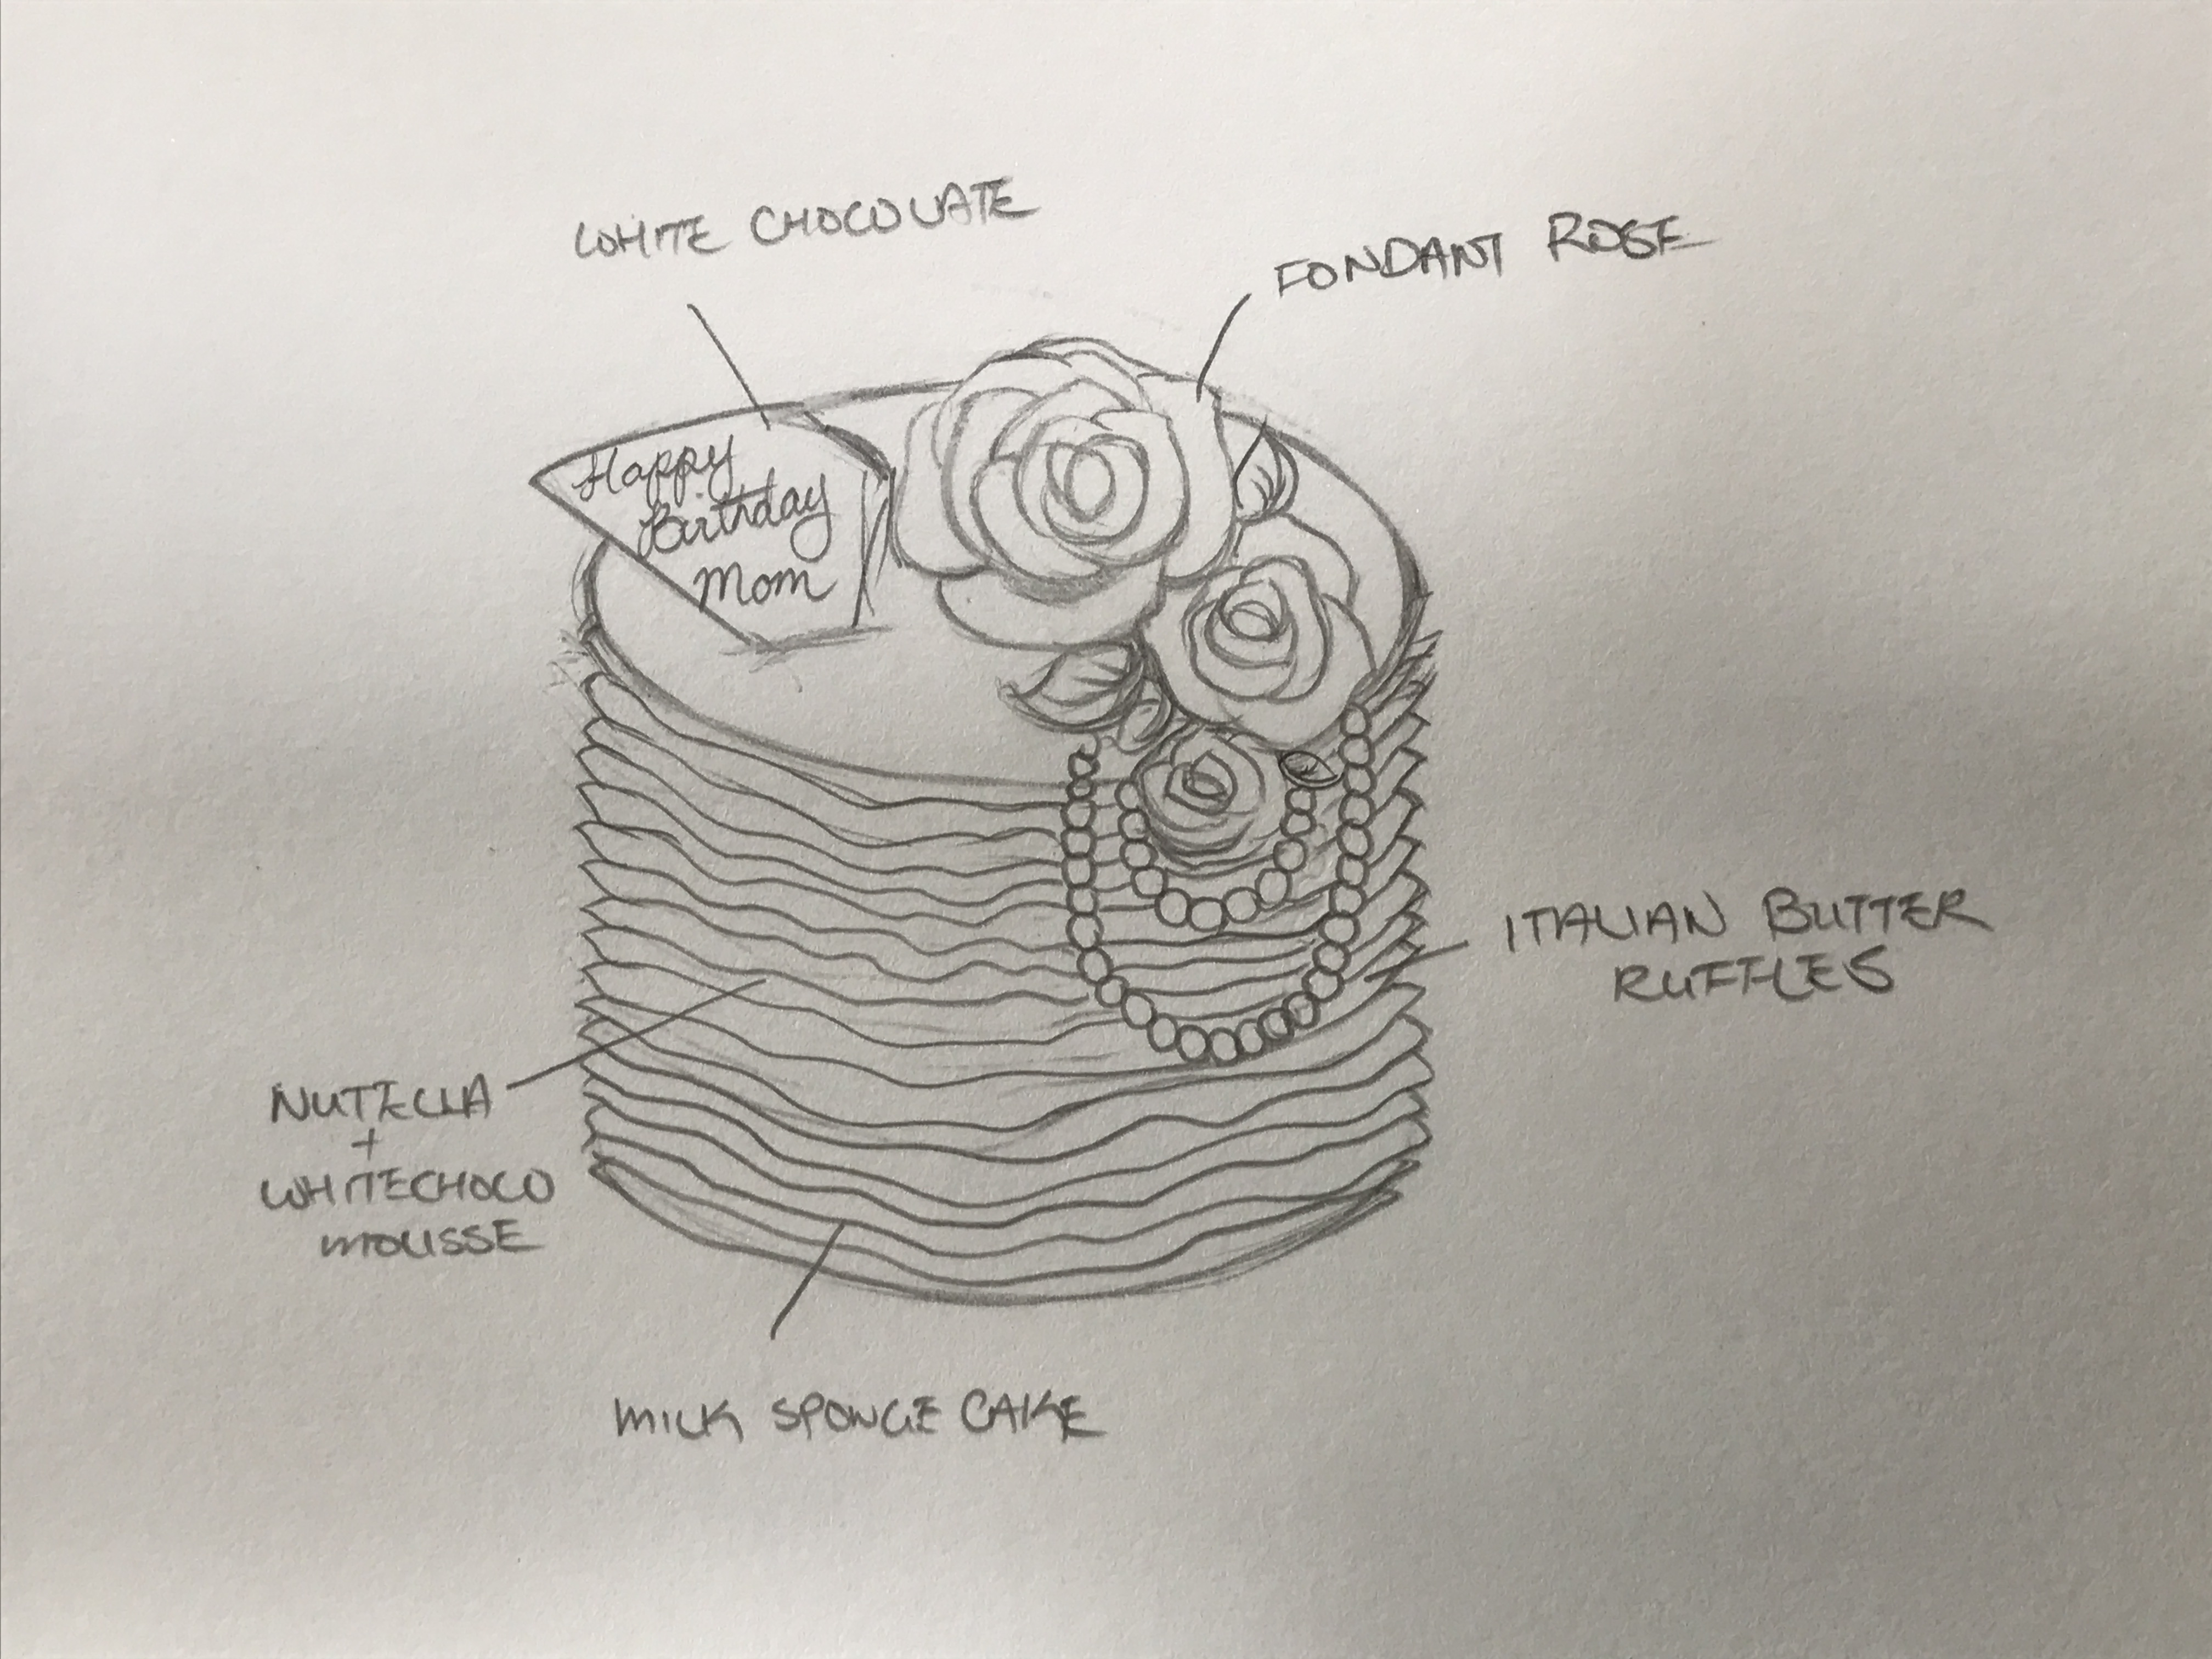 WHITE CHOCOLATE
FONDANT ROSE
Happy
Birthday
Mom
ITALIAN BUTTER
RUFFLES
NUTELLA
+
WHITECHOCO
MOUSSE
MILK SPONGE CAKE